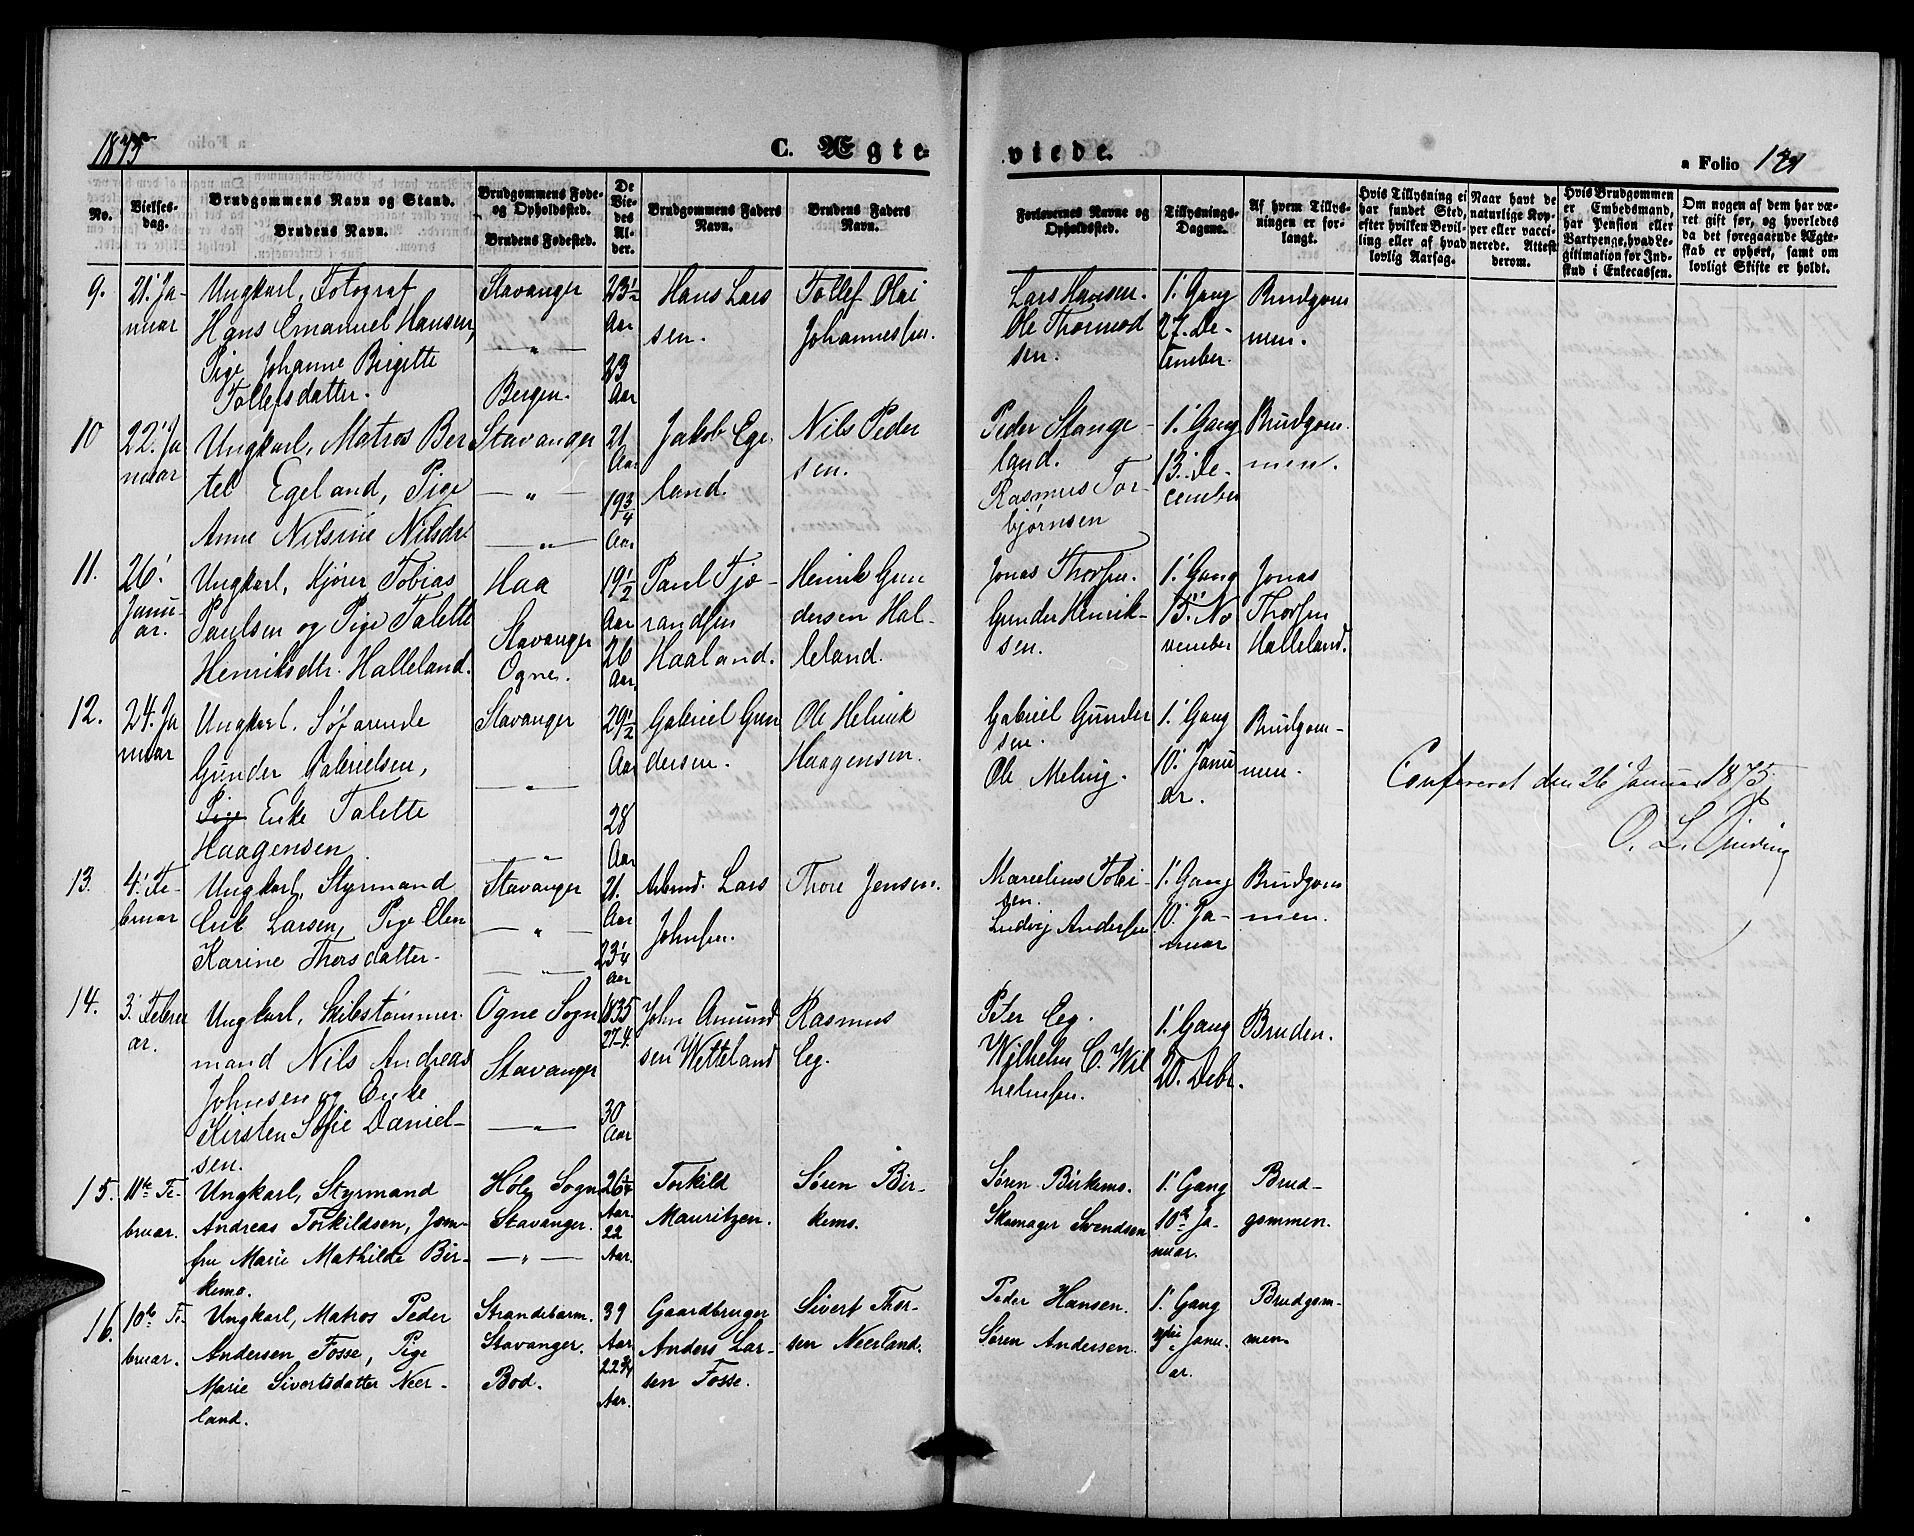 1875
C. Ægte-
viede.
a Folio 121
No.
Vielses-
dag.
Brudgommens Navn og Stand.
Brudens Navn.
Brudgommens Føde-
og Opholdssted.
Brudens Fødested.
De
Vie-
des
Al-
der.
Brudgommens Faders
Navn.
Brudens Faders
Navn.
Forlovernes Navne og
Opholdssted.
Tillysnings-
Dagene.
Af hvem Tillys-
ningen er for-
langt.
Hvis Tillysning ei
har fundet Sted,
efter hvilken Bevil-
ling eller af hvad
lovlig Aarsag.
Naar havt de
naturlige Kop-
per eller vacci-
nerede. Attest
derom.
Hvis Brudgommen
er Embedsmand,
har Pension eller
Vartpenge, hvad Le-
gitimation for Ind-
skud i Enkecassen.
Om nogen af dem har væ-
ret gift før, og hvorledes
da det foregaaende Ægte-
skab er ophørt, samt om
lovligt Skifte er holdt.
9.
21' Ja-
nuar
Ungkarl, Fotograf
Hans Emanuel Hansen,
Pige Johanne Birgitte
Tollefsdatter.
Stavanger
— " —
Bergen.
23 1/2
Aar
23
Aar
Hans Lars
sen.
Tollef Olai
Johannessen.
Lars Hansen.
Ole Thormod
sen.
1' Gang
27. De-
cember.
Brudgom
men.
10
22' Ja
nuar
Ungkarl, Matros Ber
tel Egeland, Pige
Anne Nilsine Nilsdr
Stavanger
— " —
— " —
21
Aar
19 3/4
Aar
Jakob Ege
land.
Nils Peder
sen.
Peder Stange-
land.
Rasmus Tor-
bjørnsen
1' Gang
13. De-
cember
Brudgom
men.
11.
26'
Janu-
ar.
Ungkarl, Kjører Tobias
Paulsen og Pige Talette
Henriksdtr. Halleland.
Haa
Stavanger
Ogne.
19 1/2
Aar
26
Aar
Paul Tjo-
randsen
Haaland.
Henrik Gun
dersen Hal-
leland.
Jonas Thorsen.
Gunder Henrik-
sen.
1' Gang
15' No
vember
Jonas
Thorsen
Halleland.
12.
24. Ja
nuar
Ungkarl. Søfarende
Gunder Gabrielsen,
Pige Enke Talette
Haagensen
Stavanger
— " —
— " —
29 1/2
Aar
28
Aar
Gabriel Gun
dersen.
Ole Helmik
Haagensen.
Gabriel Gunder
sen.
Ole Meling.
1' Gang
10' Janu
ar.
Brudgom-
men.
Confereret den 26' Januar 1875
O. L.
13.
4' Fe-
bruar
Ungkarl, Styrmand
Erik Larsen, Pige Elen
Karine Thorsdatter-
Stavanger
— " —
— " —
21.
Aar
23 1/4
Aar
Arbmd. Lars
Johnsen.
Thore Jensen.
Marcelius Tobi-
sen.
Ludvig Andersen
1' Gang
10' Ja-
nuar
Brudgom
men.
14.
3' Febru
ar.
Ungkarl, Skibstømmer
mand Nils Andreas
Johnsen og Enke
Kirsten Sofie Daniel-
sen.
Ogne Sogn
Stavanger
— " —
1835
27-4.
30
Aar
John Amund
sen Wetteland
Rasmus
Eeg.
Peter Eeg.
Wilhelm C. Wil
helmsen.
1' Gang
20. Debr.
Bruden.
15.
11te Fe-
bruar.
Ungkarl, Styrmand
Andreas Torkildsen, Jom-
fru Marie Mathilde Bir-
kemo.
Høle Sogn
Stavanger.
— " —
26 1/4
Aar.
22
Aar.
Torkild
Mauritzen.
Søren Bir-
kemo.
Søren Birkemo.
Skomager Svendsen
1' Gang
10de Ja-
nuar.
Brud-
gommen.
16.
10te Fe-
bruar.
Ungkarl, Matros Peder
Andersen Fosse, Pige
Marie Sivertsdatter Neer-
land.
Strandebarm.
Stavanger.
Bod.
39
Aar
22 3/4
Aar.
Gaardbruger
Anders Lar-
sen Fosse.
Sivert Thor-
sen Neerland.
Peder Hansen.
Søren Andersen.
1' Gang
3die Janu-
ar.
Brudgom-
men.